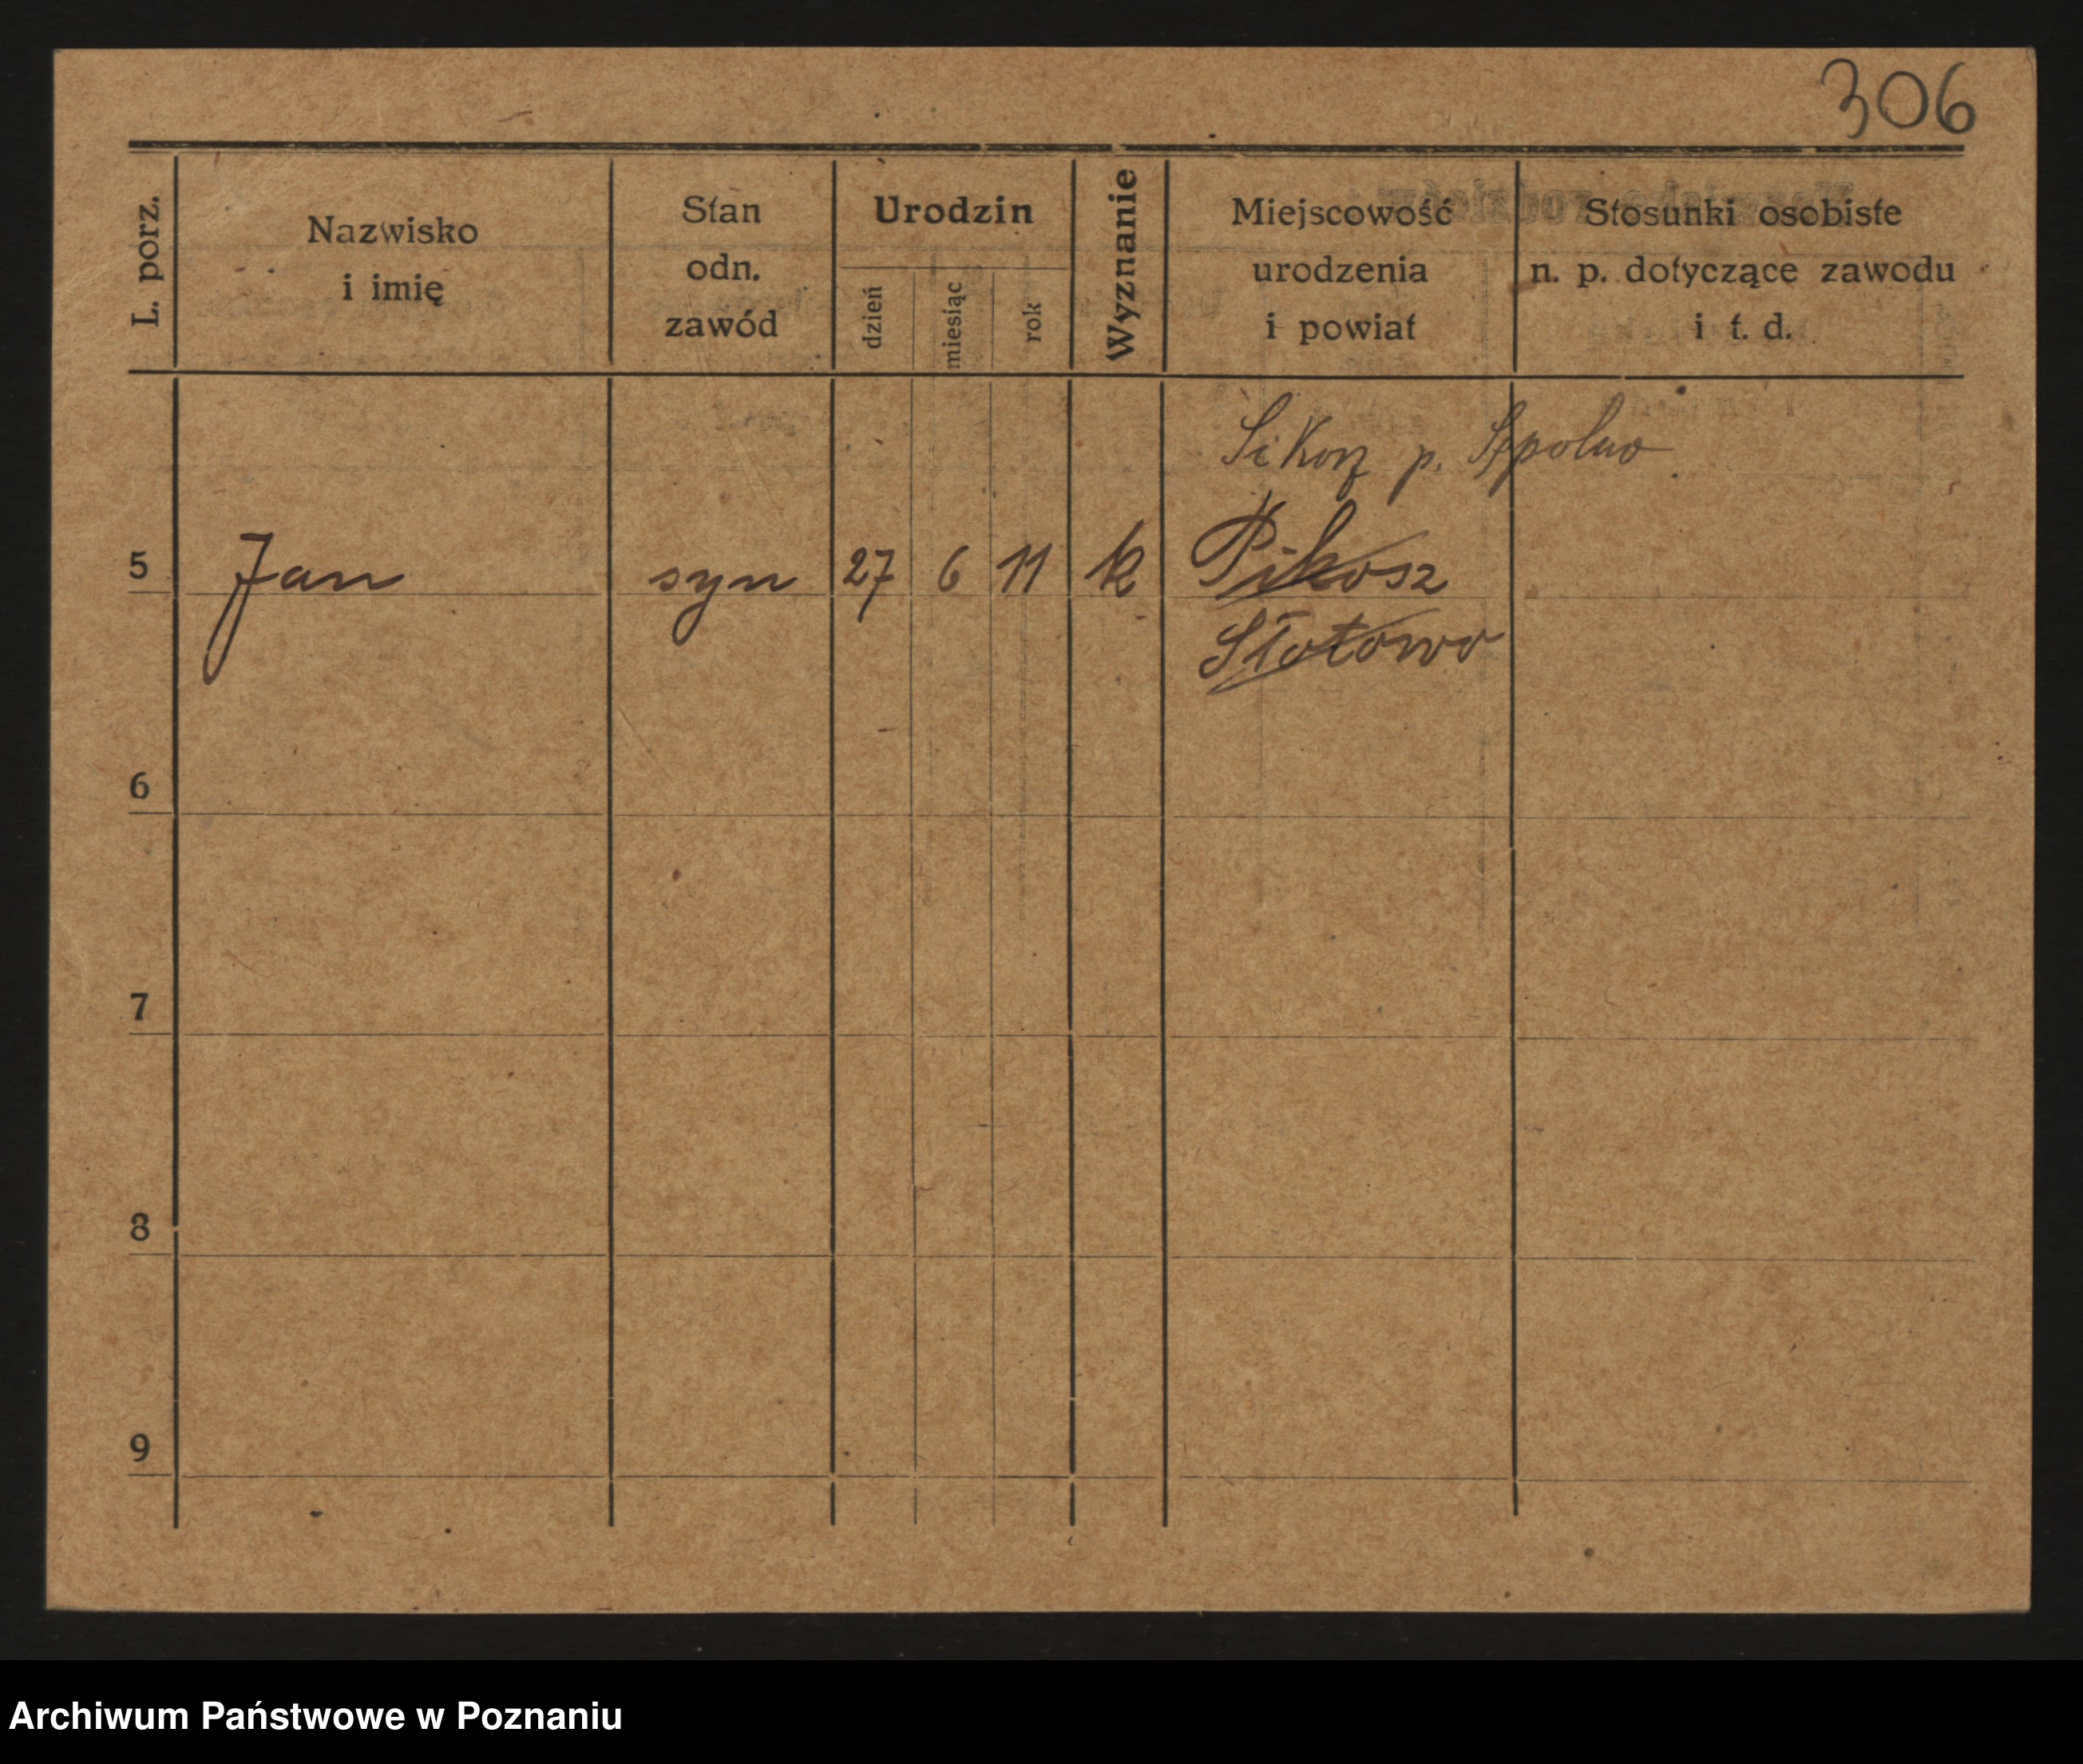 306
L. porz.
Nazwisko
i imię
Stan
odn.
zawód
Urodzin
dzień
miesiąc
rok
Wyznanie
Miejscowość
urodzenia
i powiat
Stosunki osobiste
n. p. dotyczące zawodu
i t. d.
Sikorz p. Sępolno
5 Jan syn 27 6 11 k Pikosz
Słotowo
6
7
8
9
Archiwum Państwowe w Poznaniu